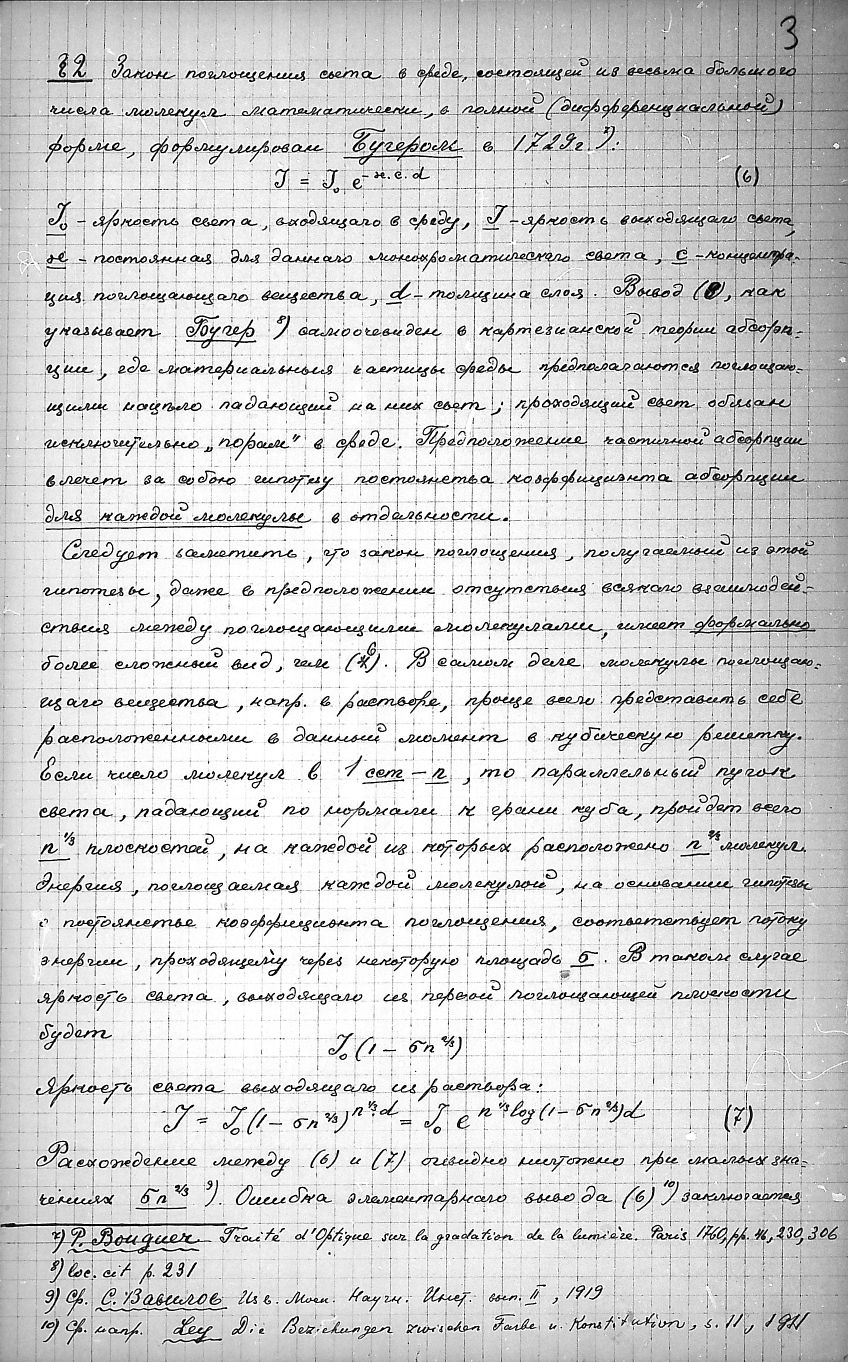 3
§2 Закон поглощения света в среде, состоящей из весьма большого
числа молекул математически, в полной (дифференциальной)
форме, формулирован Бугером в 1729г. 7):
J = J₀ e^(-ϰ.c.d) (6)
J₀ – яркость света, входящаго в среду, J – яркость выходящаго света,
ϰ – постоянная для даннаго монохроматическаго света, c – концентра-
ция поглощающаго вещества, d – толщина слоя. Вывод (6), как
указывает Бугер 8) самоочевиден в картезианской теории абсорп-
ции, где материальныя частицы среды предполагаются поглощаю-
щими нацело падающий на них свет; проходящий свет обязан
исключительно „порам" в среде. Предположение частичной абсорпции
влечет за собою гипотезу постоянства коэффициэнта абсорпции
для каждой молекулы в отдельности.
Следует заметить, что закон поглощения, получаемый из этой
гипотезы, даже в предположении отсутствия всякаго взаимодей-
ствия между поглощающими молекулами, имеет формально
более сложный вид, чем (6). В самом деле молекулы поглощаю-
щаго вещества, напр. в растворе, проще всего представить себе
расположенными в данный момент в кубическую решетку.
Если число молекул в 1 ccm – n, то параллельный пучок
света, падающий по нормали к грани куба, пройдет всего
n^(1/3) плоскостей, на каждой из которых расположено n^(2/3) молекул.
Энергия, поглощаемая каждой молекулой, на основании гипотезы
о постоянстве коэффициэнта поглощения, соответствует потоку
энергии, проходящему через некоторую площадь σ. В таком случае
яркость света, выходящаго из первой поглощающей плоскости
будет
J₀ (1 – σn^(2/3))
Яркость света выходящаго из раствора:
J = J₀ (1 – σn^(2/3))^(n^(1/3)d) = J₀ e^(n^(1/3) log(1 – σn^(2/3))d) (7)
Расхождение между (6) и (7) очевидно ничтожно при малых зна-
чениях σn^(2/3) 9). Ошибка элементарнаго вывода (6) 10) заключается
7) P. Bouguer Traité d'Optique sur la gradation de la lumière. Paris 1760, pp. 46, 230, 306
8) loc. cit p. 231
9) Ср. С. Вавилов Изв. Моск. Научн. Инст. вып. II, 1919
10) Ср. напр. Ley Die Beziehungen zwischen Farbe u. Konstitution, s. 11, 1911